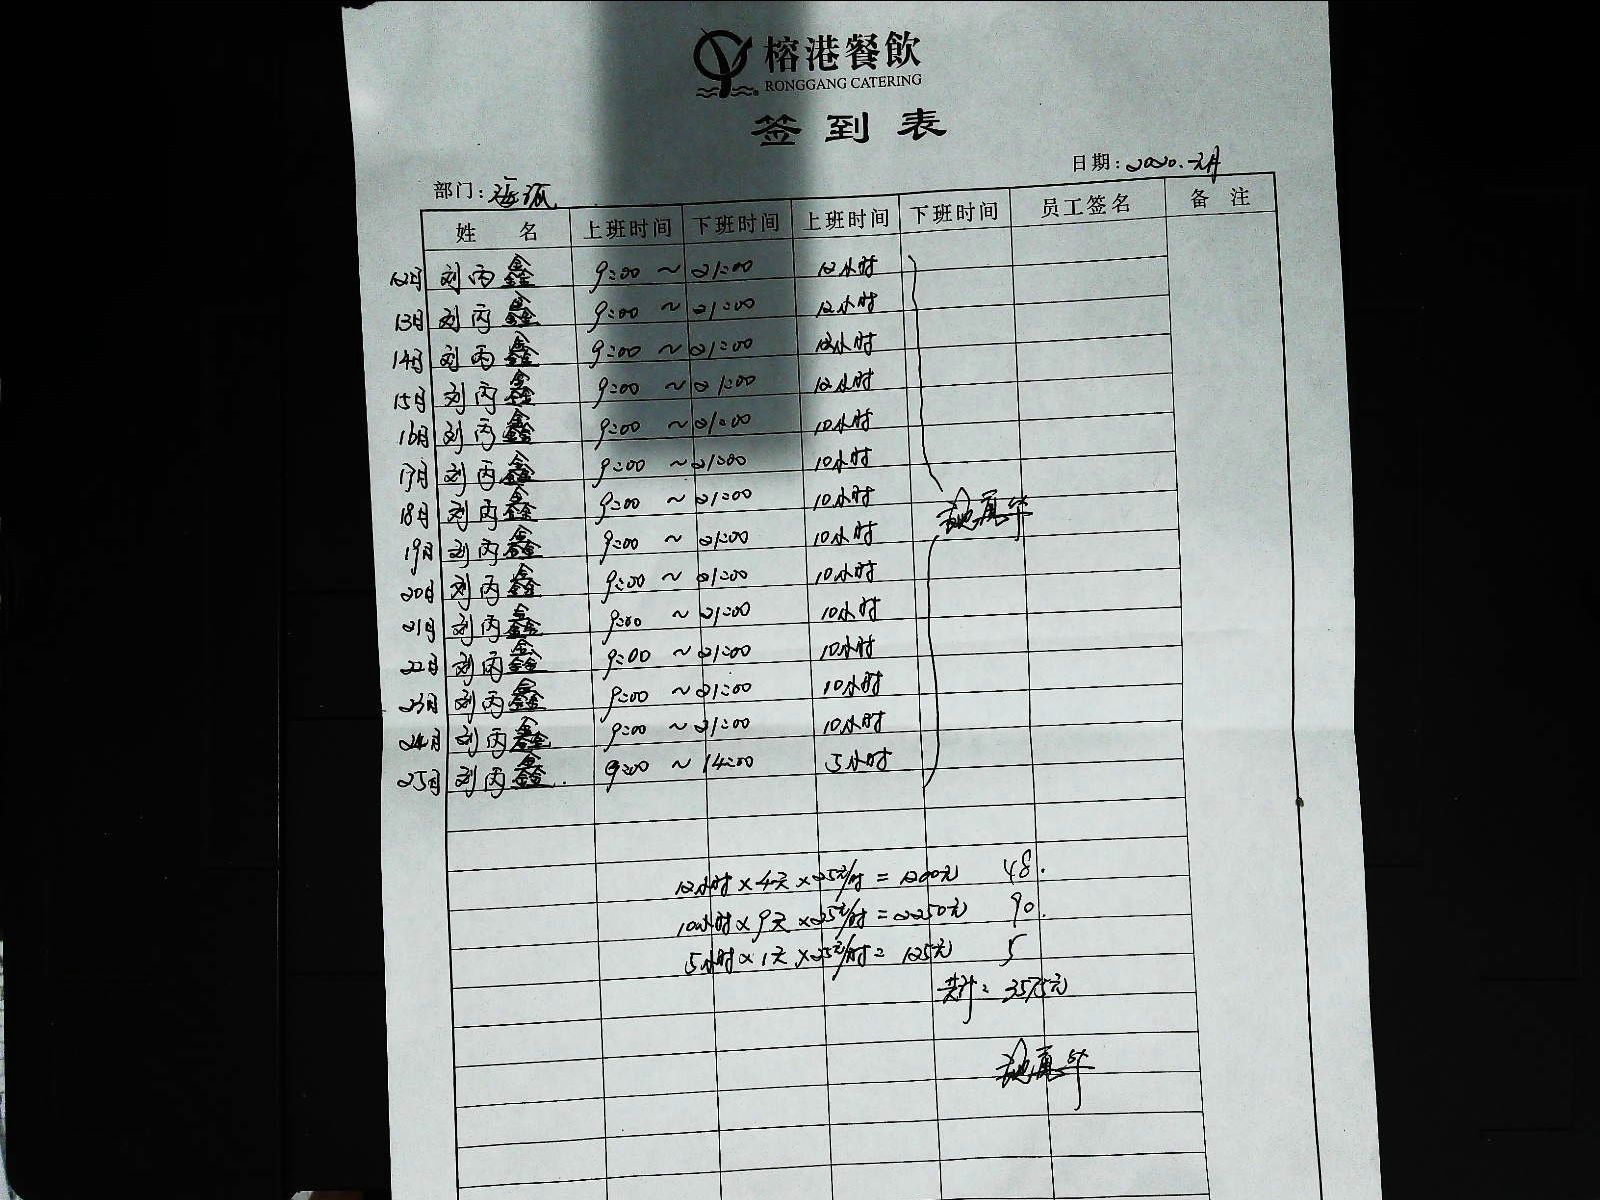 榕港餐飲
RONGGANG CATERING
签到表
日期:2020.元月
部门:海派
姓 名 上班时间 下班时间 上班时间 下班时间 员工签名 备 注
12日 刘丙鑫 9:00 ~ 21:00 12小时
13日 刘丙鑫 9:00 ~ 21:00 12小时
14日 刘丙鑫 9:00 ~ 21:00 12小时
15日 刘丙鑫 9:00 ~ 21:00 12小时
16日 刘丙鑫 9:00 ~ 21:00 10小时
17日 刘丙鑫 9:00 ~ 21:00 10小时
18日 刘丙鑫 9:00 ~ 21:00 10小时
19日 刘丙鑫 9:00 ~ 21:00 10小时
20日 刘丙鑫 9:00 ~ 21:00 10小时
21日 刘丙鑫 9:00 ~ 21:00 10小时
22日 刘丙鑫 9:00 ~ 21:00 10小时
23日 刘丙鑫 9:00 ~ 21:00 10小时
24日 刘丙鑫 9:00 ~ 21:00 10小时
25日 刘丙鑫. 9:00 ~ 14:00 5小时
12小时×4天×25元/时=1200元 48.
10小时×9天×25元/时=2250元 90.
5小时×1天×25元/时=125元 5
共计:3575元